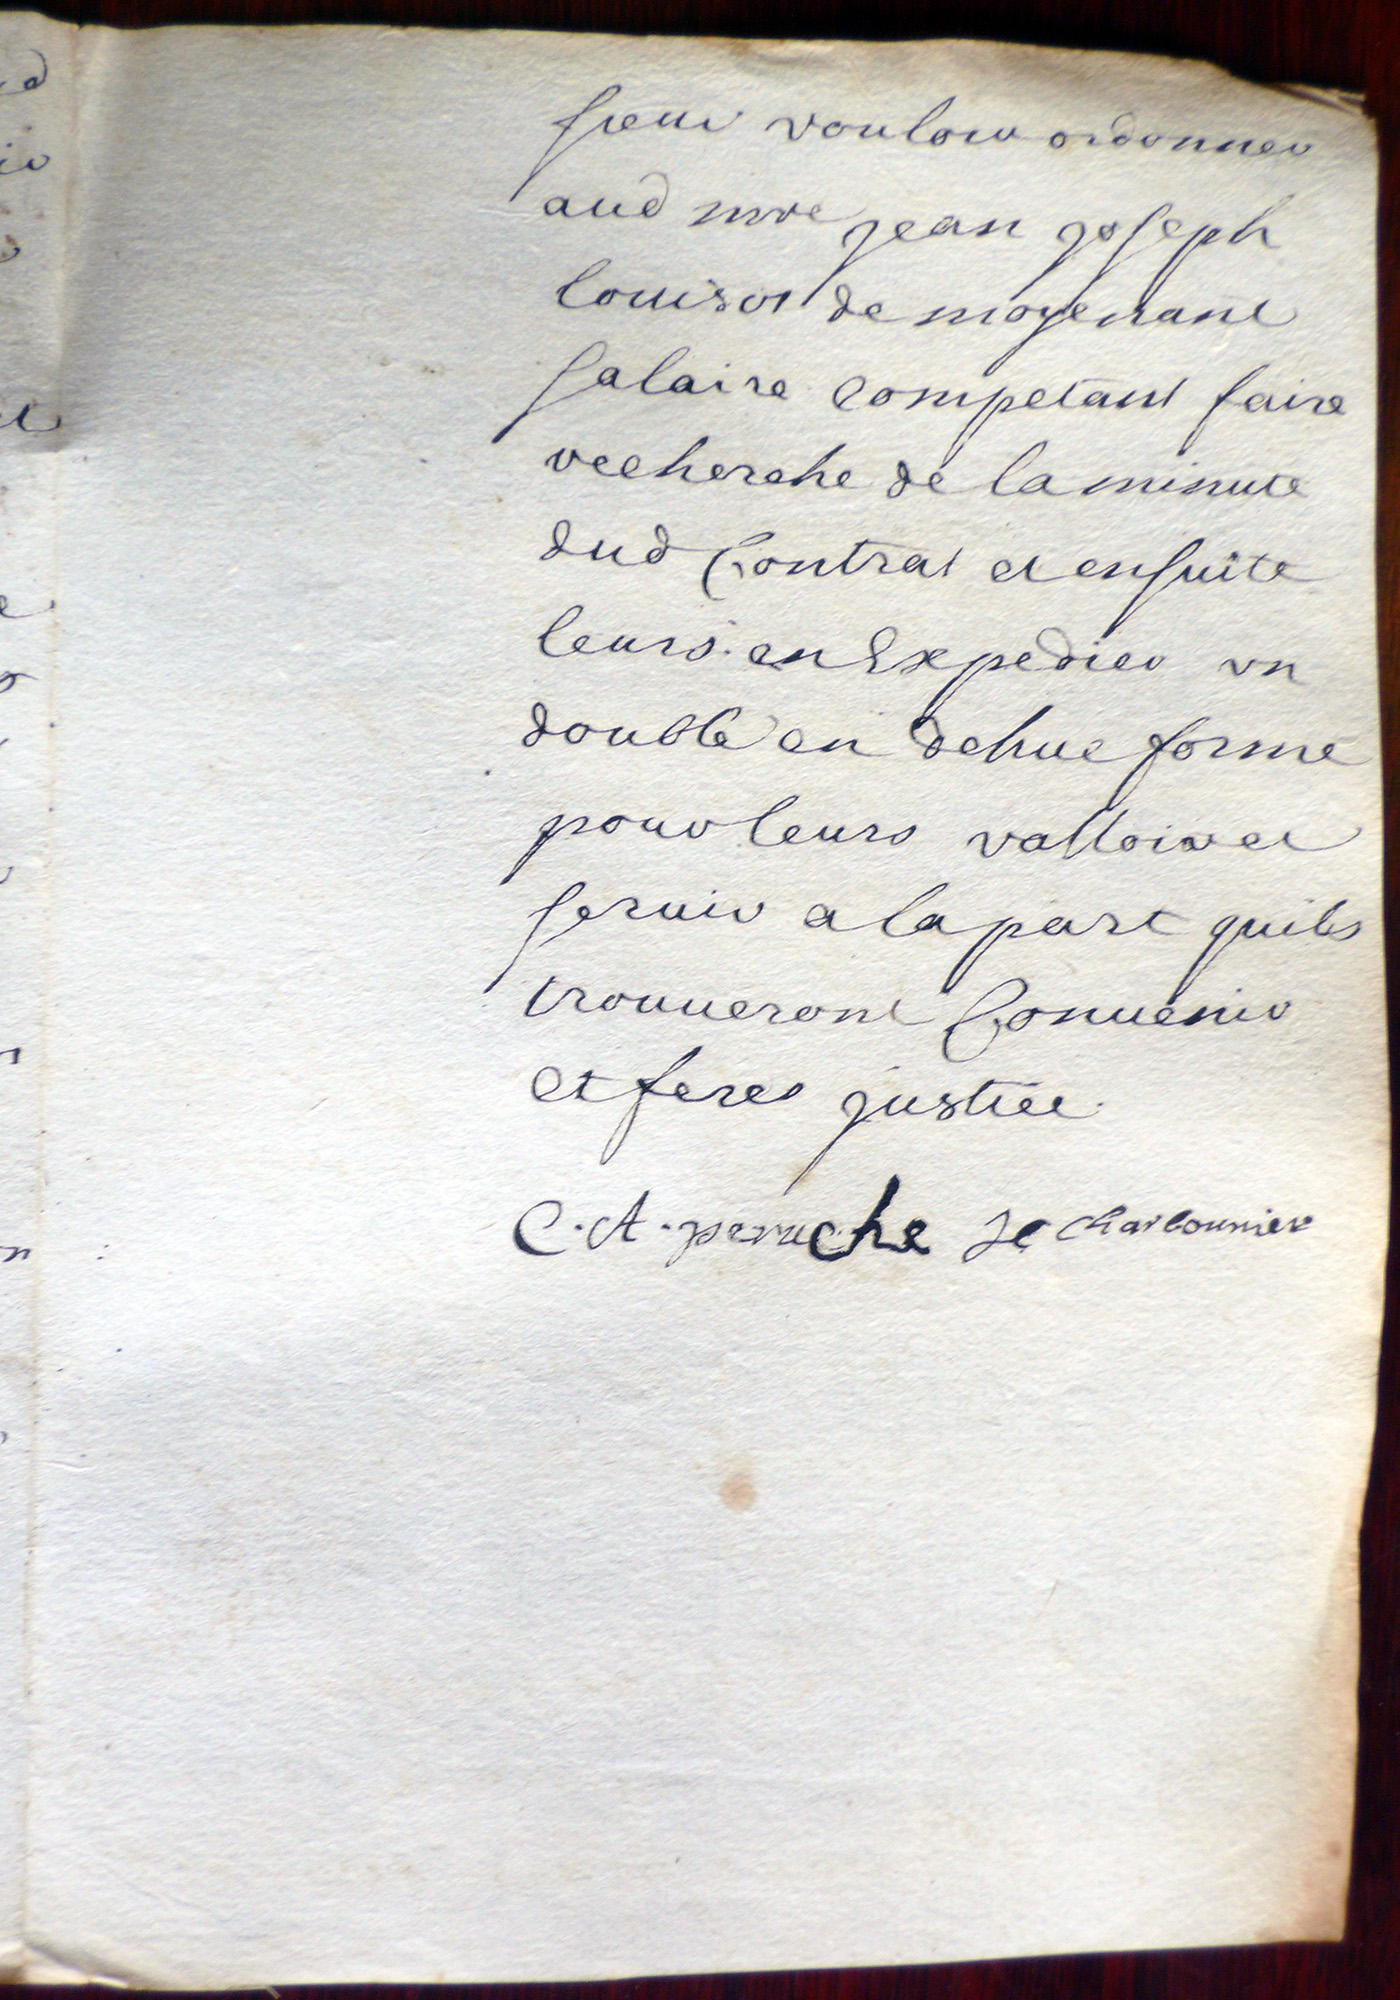 sieur vouloir ordonner
aud nore jean joseph
louisot de moyenant
salaire competant faire
recherche de la minute
dud Contrat et ensuite
leurs en Expedier un
double en dehue forme
pour leurs valloir et
servir a la part quils
trouueront Conuenir
et feres justice
C. A. peruche JC charbonnier